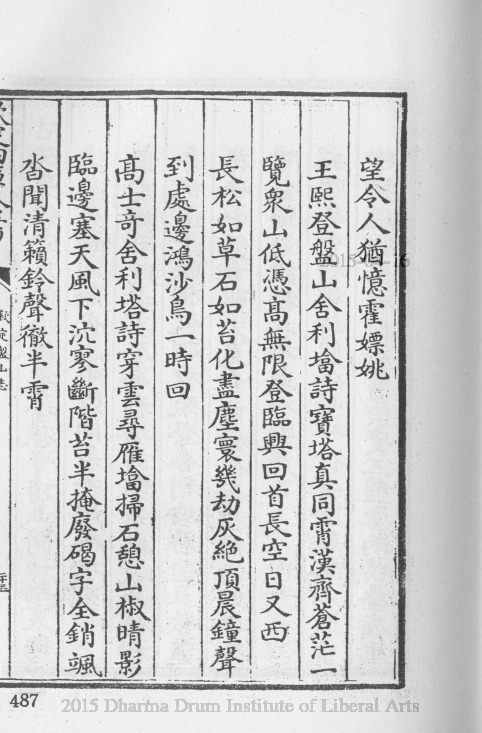 望令人猶憶霍嫖姚
王熙登盤山舍利墖詩寶塔真同霄漢齊蒼茫一
覽衆山低憑高無限登臨興回首長空日又西
長松如草石如苔化盡塵寰幾劫灰絶頂晨鐘聲
到處邊鴻沙鳥一時回
高士奇舍利塔詩穿雲尋雁墖掃石憩山椒晴影
臨邊塞天風下泬寥斷階苔半掩廢碣字全銷颯
沓聞清籟鈴聲徹半霄
欽定盤山志
487
2015 Dharma Drum Institute of Liberal Arts